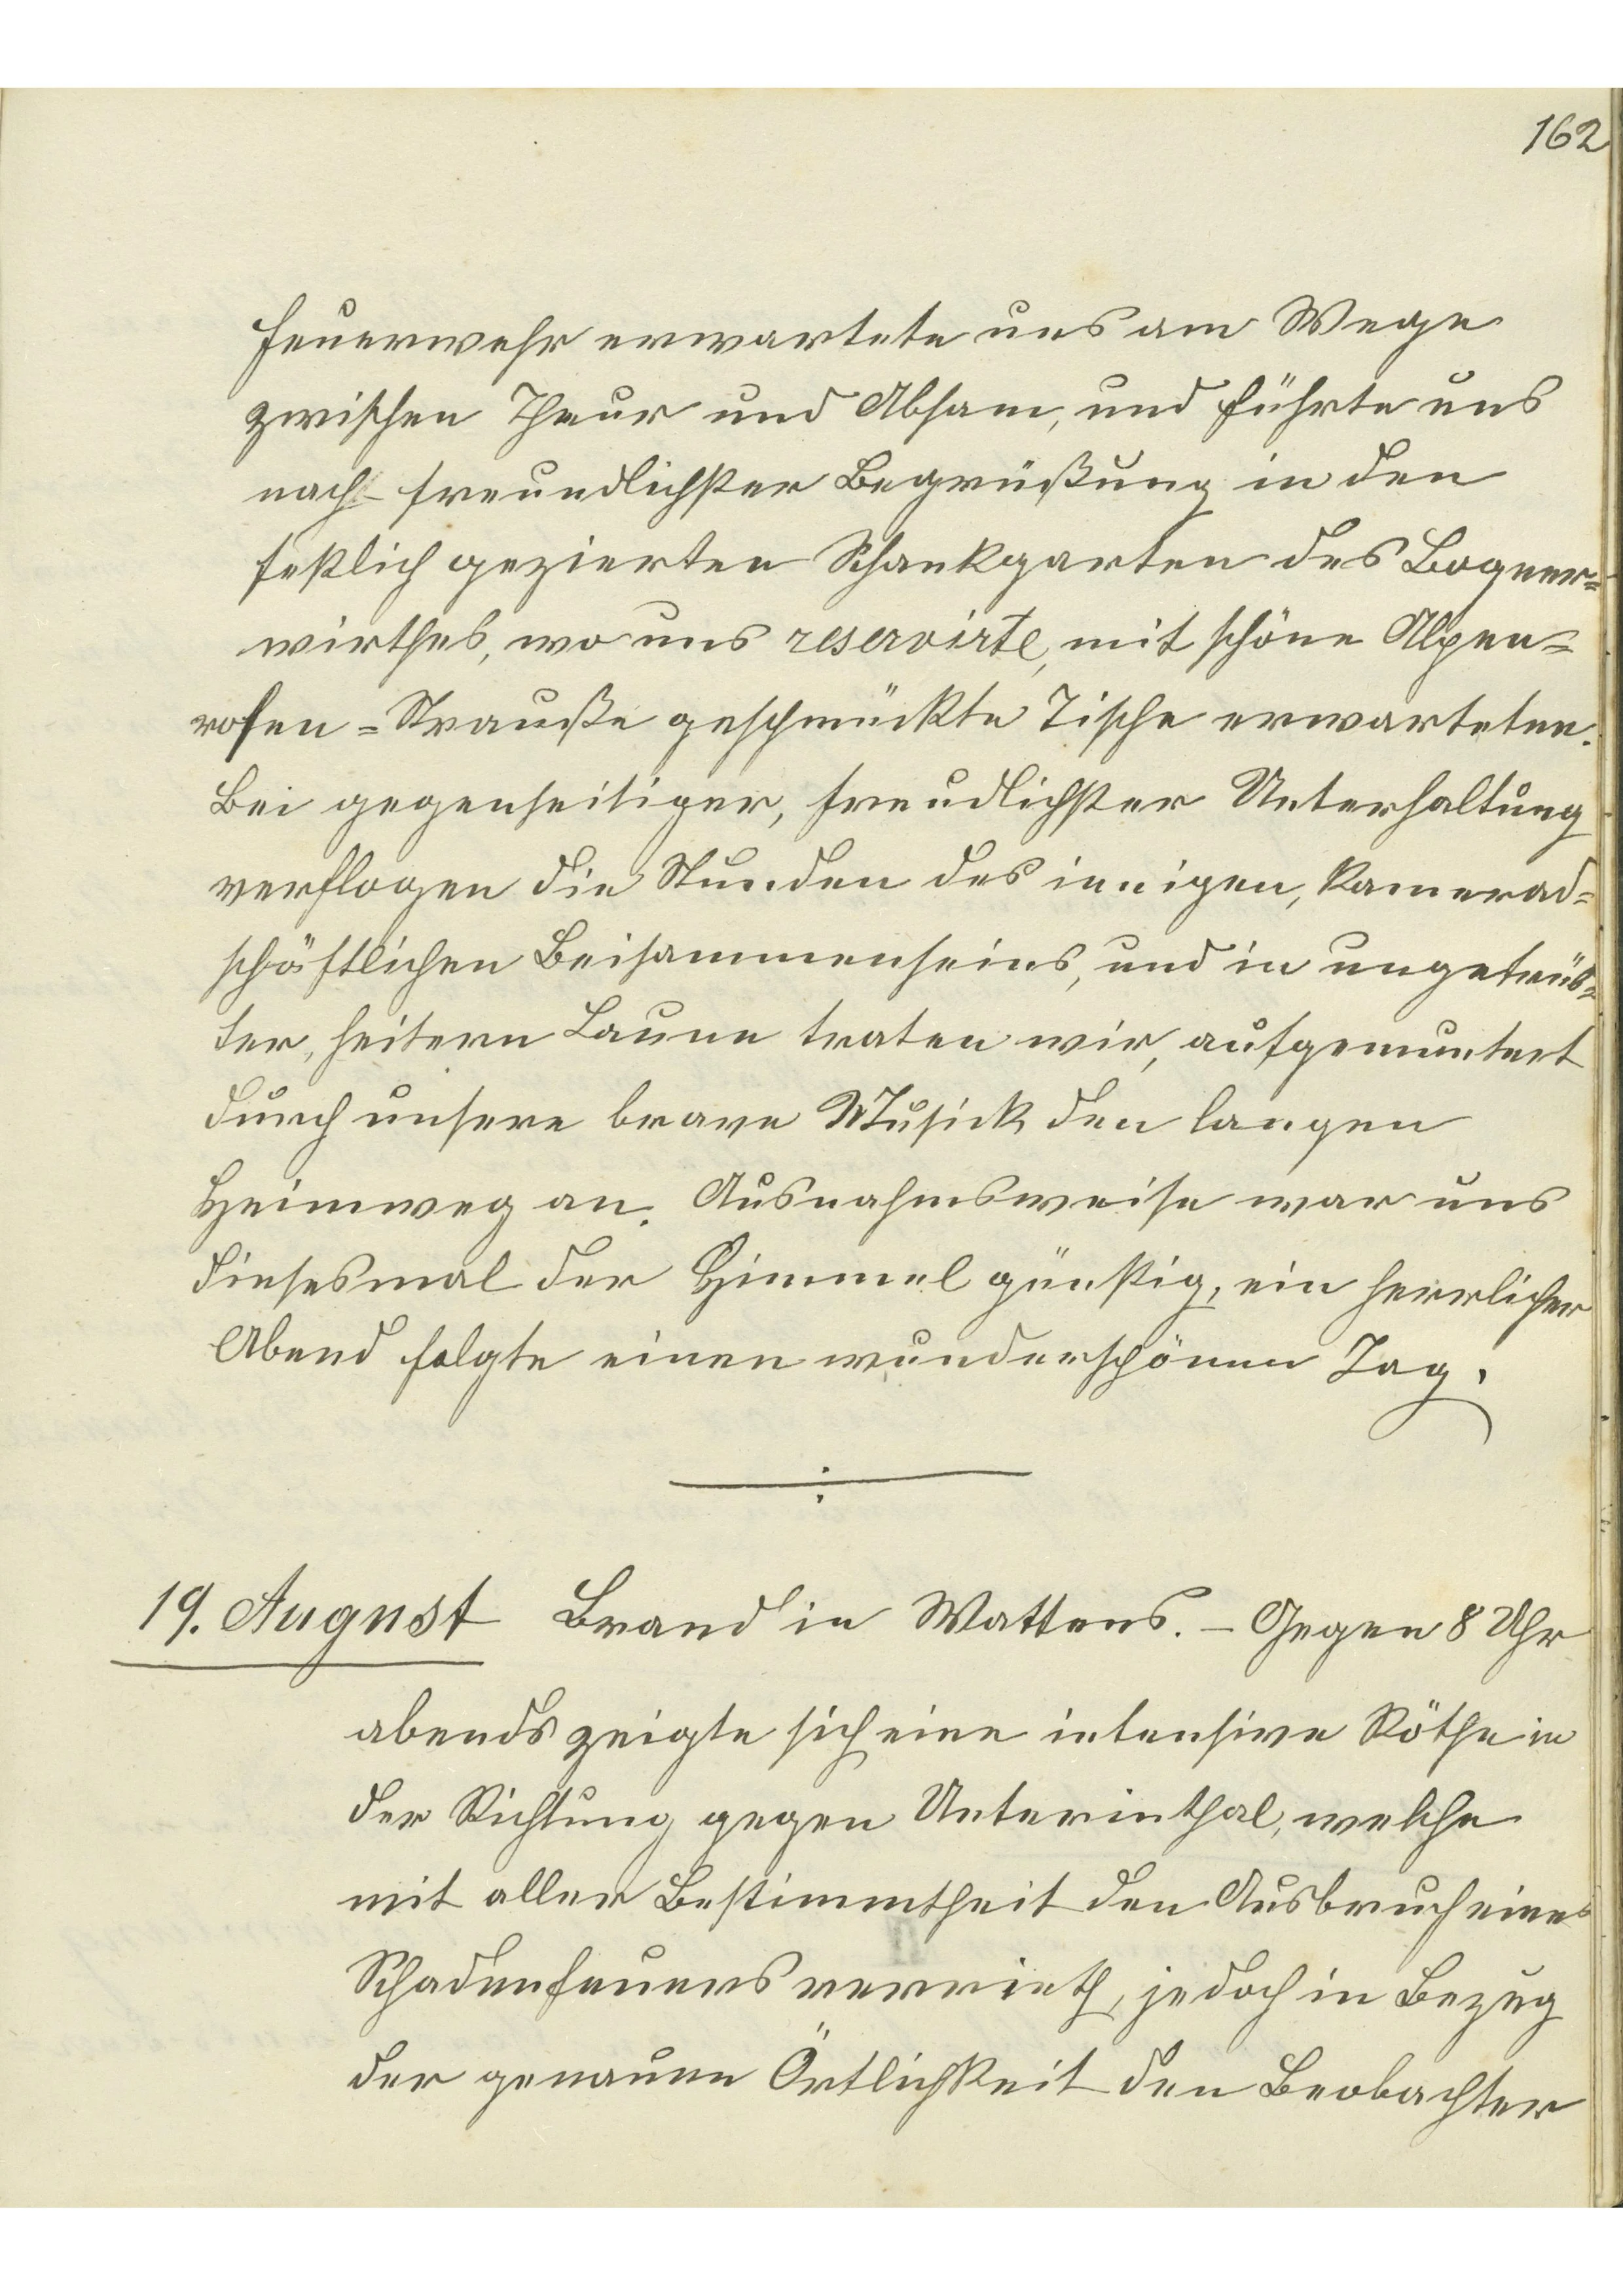 162
Feuerwehr erwartete uns am Wege
zwischen Thaur und Absam, und führte uns
nach freundlichster Begrüßung in den
festlich gezierten Schankgarten des Bogner=
wirthes, wo uns reservirte, mit schöne Alpen=
rosen=Strauße geschmückte Tische erwarteten.
Bei gegenseitiger, freudlichster Unterhaltung
verflogen die Stunden des innigen, kamerad=
schäftlichen Beisammenseins, und in ungetrüb=
ter, heitern Laune traten wir, aufgemuntert
durch unsere brave Musick den langen
Heimweg an. Ausnahmsweise war uns
diesesmal der Himmel günstig, ein herrlicher
Abend folgte einen wunderschönen Tag.
19. August Brand in Wattens. – Gegen 8 Uhr
abends zeigte sich eine intensive Röthe in
der Richtung gegen Unterinthal, welche
mit aller Bestimmtheit den Ausbruch eines
Schadenfeuers verrieth, jedoch in Bezug
der genauen Örtlichkeit den Beobachter